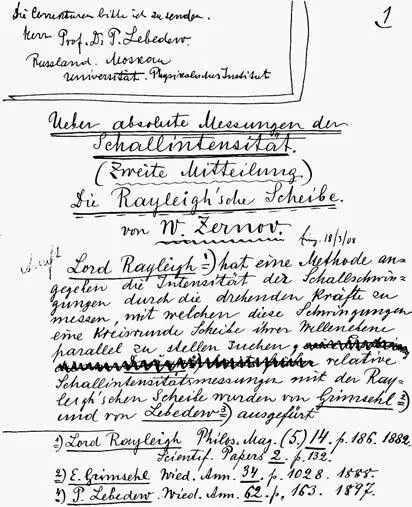 Die Correcturen bitte ich zu senden.
Herr Prof. Dr P. Lebedew.
Russland. Moskau
Universität. Physikalisches Institut
1
Ueber absolute Messungen der
Schallintensität.
(Zweite Mitteilung.)
Die Rayleigh'sche Scheibe.
von W. Zernov.
18/3/08
Lord Rayleigh 1) hat eine Methode an-
gegeben die Intensität der Schallschwin-
gungen durch die drehenden Kräfte zu
messen, mit welchen diese Schwingungen
eine kreisrunde Scheibe ihrer Wellenebene
parallel zu stellen suchen;
relative
Schallintensitätsmessungen mit der Ray-
leigh'schen Scheibe wurden von Grimsehl 2)
und von Lebedew 3) ausgeführt
1) Lord Rayleigh Philos. Mag. (5.) 14. p. 186. 1882.
Scientif. Papers 2. p. 132.
2) E. Grimsehl Wied. Ann. 34. p. 1028. 1888.
P. Lebedew. Wied. Ann. 62. p. 163. 1897.